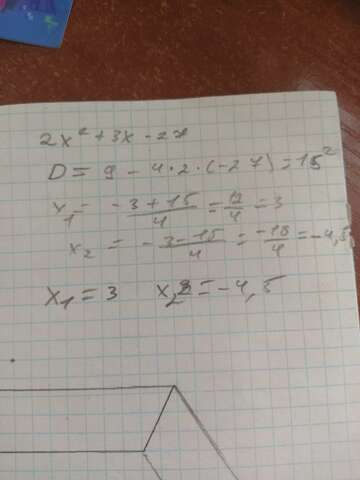 2x² + 3x - 27
D = 9 - 4·2·(-27) = 15²
x₁ = -3+15/4 = 12/4 = 3
x₂ = -3-15/4 = -18/4 = -4,5
x₁ = 3 x₂ = -4,5